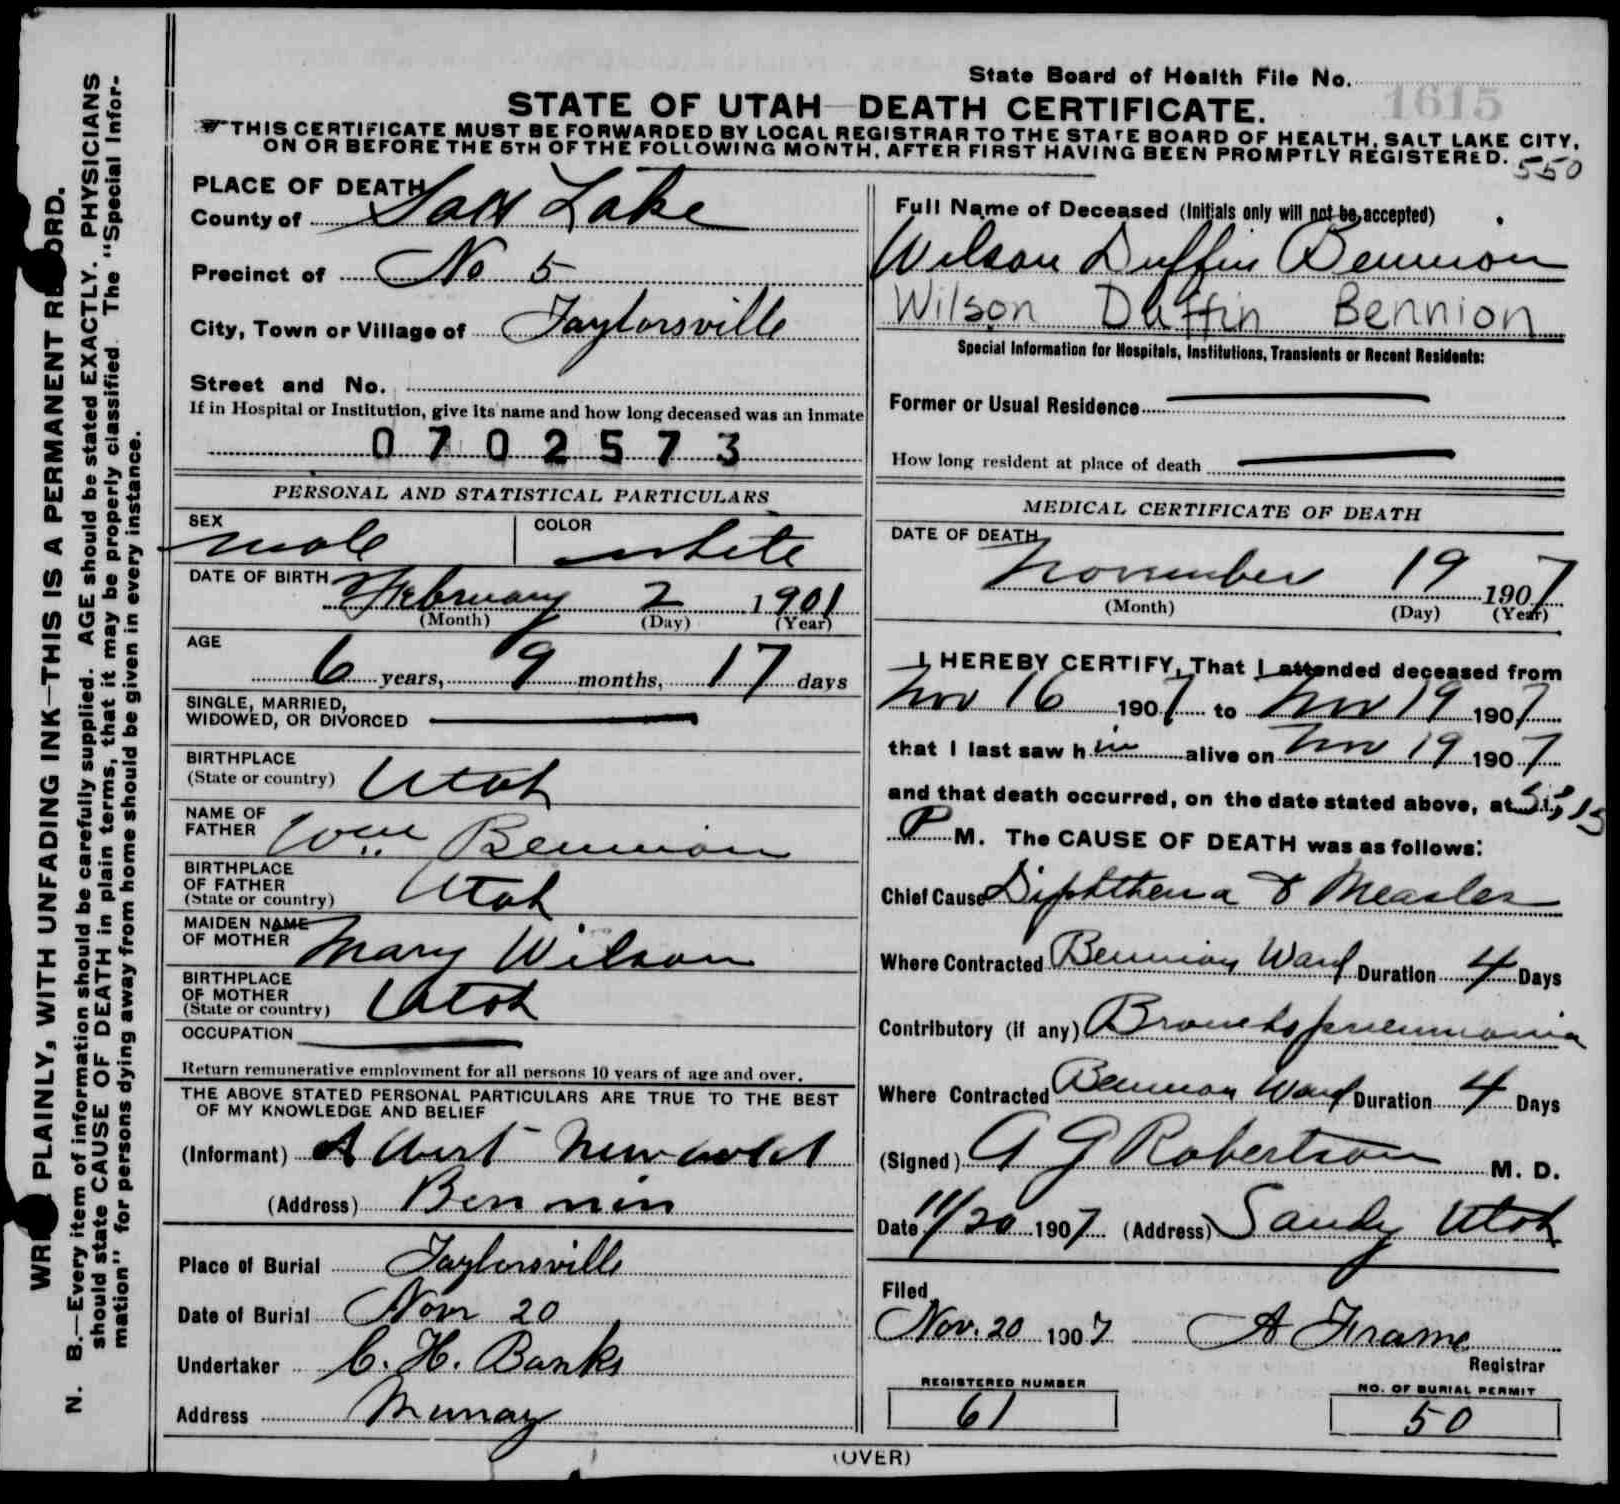 State Board of Health File No. 1615
STATE OF UTAH—DEATH CERTIFICATE.
THIS CERTIFICATE MUST BE FORWARDED BY LOCAL REGISTRAR TO THE STATE BOARD OF HEALTH, SALT LAKE CITY,
ON OR BEFORE THE 5TH OF THE FOLLOWING MONTH, AFTER FIRST HAVING BEEN PROMPTLY REGISTERED.
550
PLACE OF DEATH
County of Salt Lake
Precinct of No 5
City, Town or Village of Taylorsville
Street and No.
If in Hospital or Institution, give its name and how long deceased was an inmate
0702573
PERSONAL AND STATISTICAL PARTICULARS
SEX male COLOR white
DATE OF BIRTH February 2 1901
(Month) (Day) (Year)
AGE
6 years, 9 months, 17 days
SINGLE, MARRIED,
WIDOWED, OR DIVORCED
BIRTHPLACE
(State or country) Utah
NAME OF
FATHER Wm Bennion
BIRTHPLACE
OF FATHER
(State or country) Utah
MAIDEN NAME
OF MOTHER Mary Wilson
BIRTHPLACE
OF MOTHER
(State or country) Utah
OCCUPATION
Return remunerative employment for all persons 10 years of age and over.
THE ABOVE STATED PERSONAL PARTICULARS ARE TRUE TO THE BEST
OF MY KNOWLEDGE AND BELIEF
(Informant) Albert
(Address) Bennion
Place of Burial Taylorsville
Date of Burial Nov 20
Undertaker C. H. Banks
Address Murray
Full Name of Deceased (Initials only will not be accepted)
Wilson Duffin Bennion
Wilson Duffin Bennion
Special Information for Hospitals, Institutions, Transients or Recent Residents:
Former or Usual Residence
How long resident at place of death
MEDICAL CERTIFICATE OF DEATH
DATE OF DEATH
November 19 1907
(Month) (Day) (Year)
I HEREBY CERTIFY, That I attended deceased from
Nov 16 1907 to Nov 19 1907
that I last saw him alive on Nov 19 1907
and that death occurred, on the date stated above, at
P M. The CAUSE OF DEATH was as follows:
Chief Cause Diphtheria & Measles
Where Contracted Bennion Ward Duration 4 Days
Contributory (if any) Bronchopneumonia
Where Contracted Bennion Ward Duration 4 Days
(Signed) A G Robertson M. D.
Date 11/20 1907 (Address) Sandy Utah
Filed
Nov. 20 1907 A Frame
Registrar
REGISTERED NUMBER
61
NO. OF BURIAL PERMIT
50
(OVER)
WRITE PLAINLY, WITH UNFADING INK—THIS IS A PERMANENT RECORD.
N. B.—Every item of information should be carefully supplied. AGE should be stated EXACTLY. PHYSICIANS
should state CAUSE OF DEATH in plain terms, that it may be properly classified. The "Special Infor-
mation" for persons dying away from home should be given in every instance.